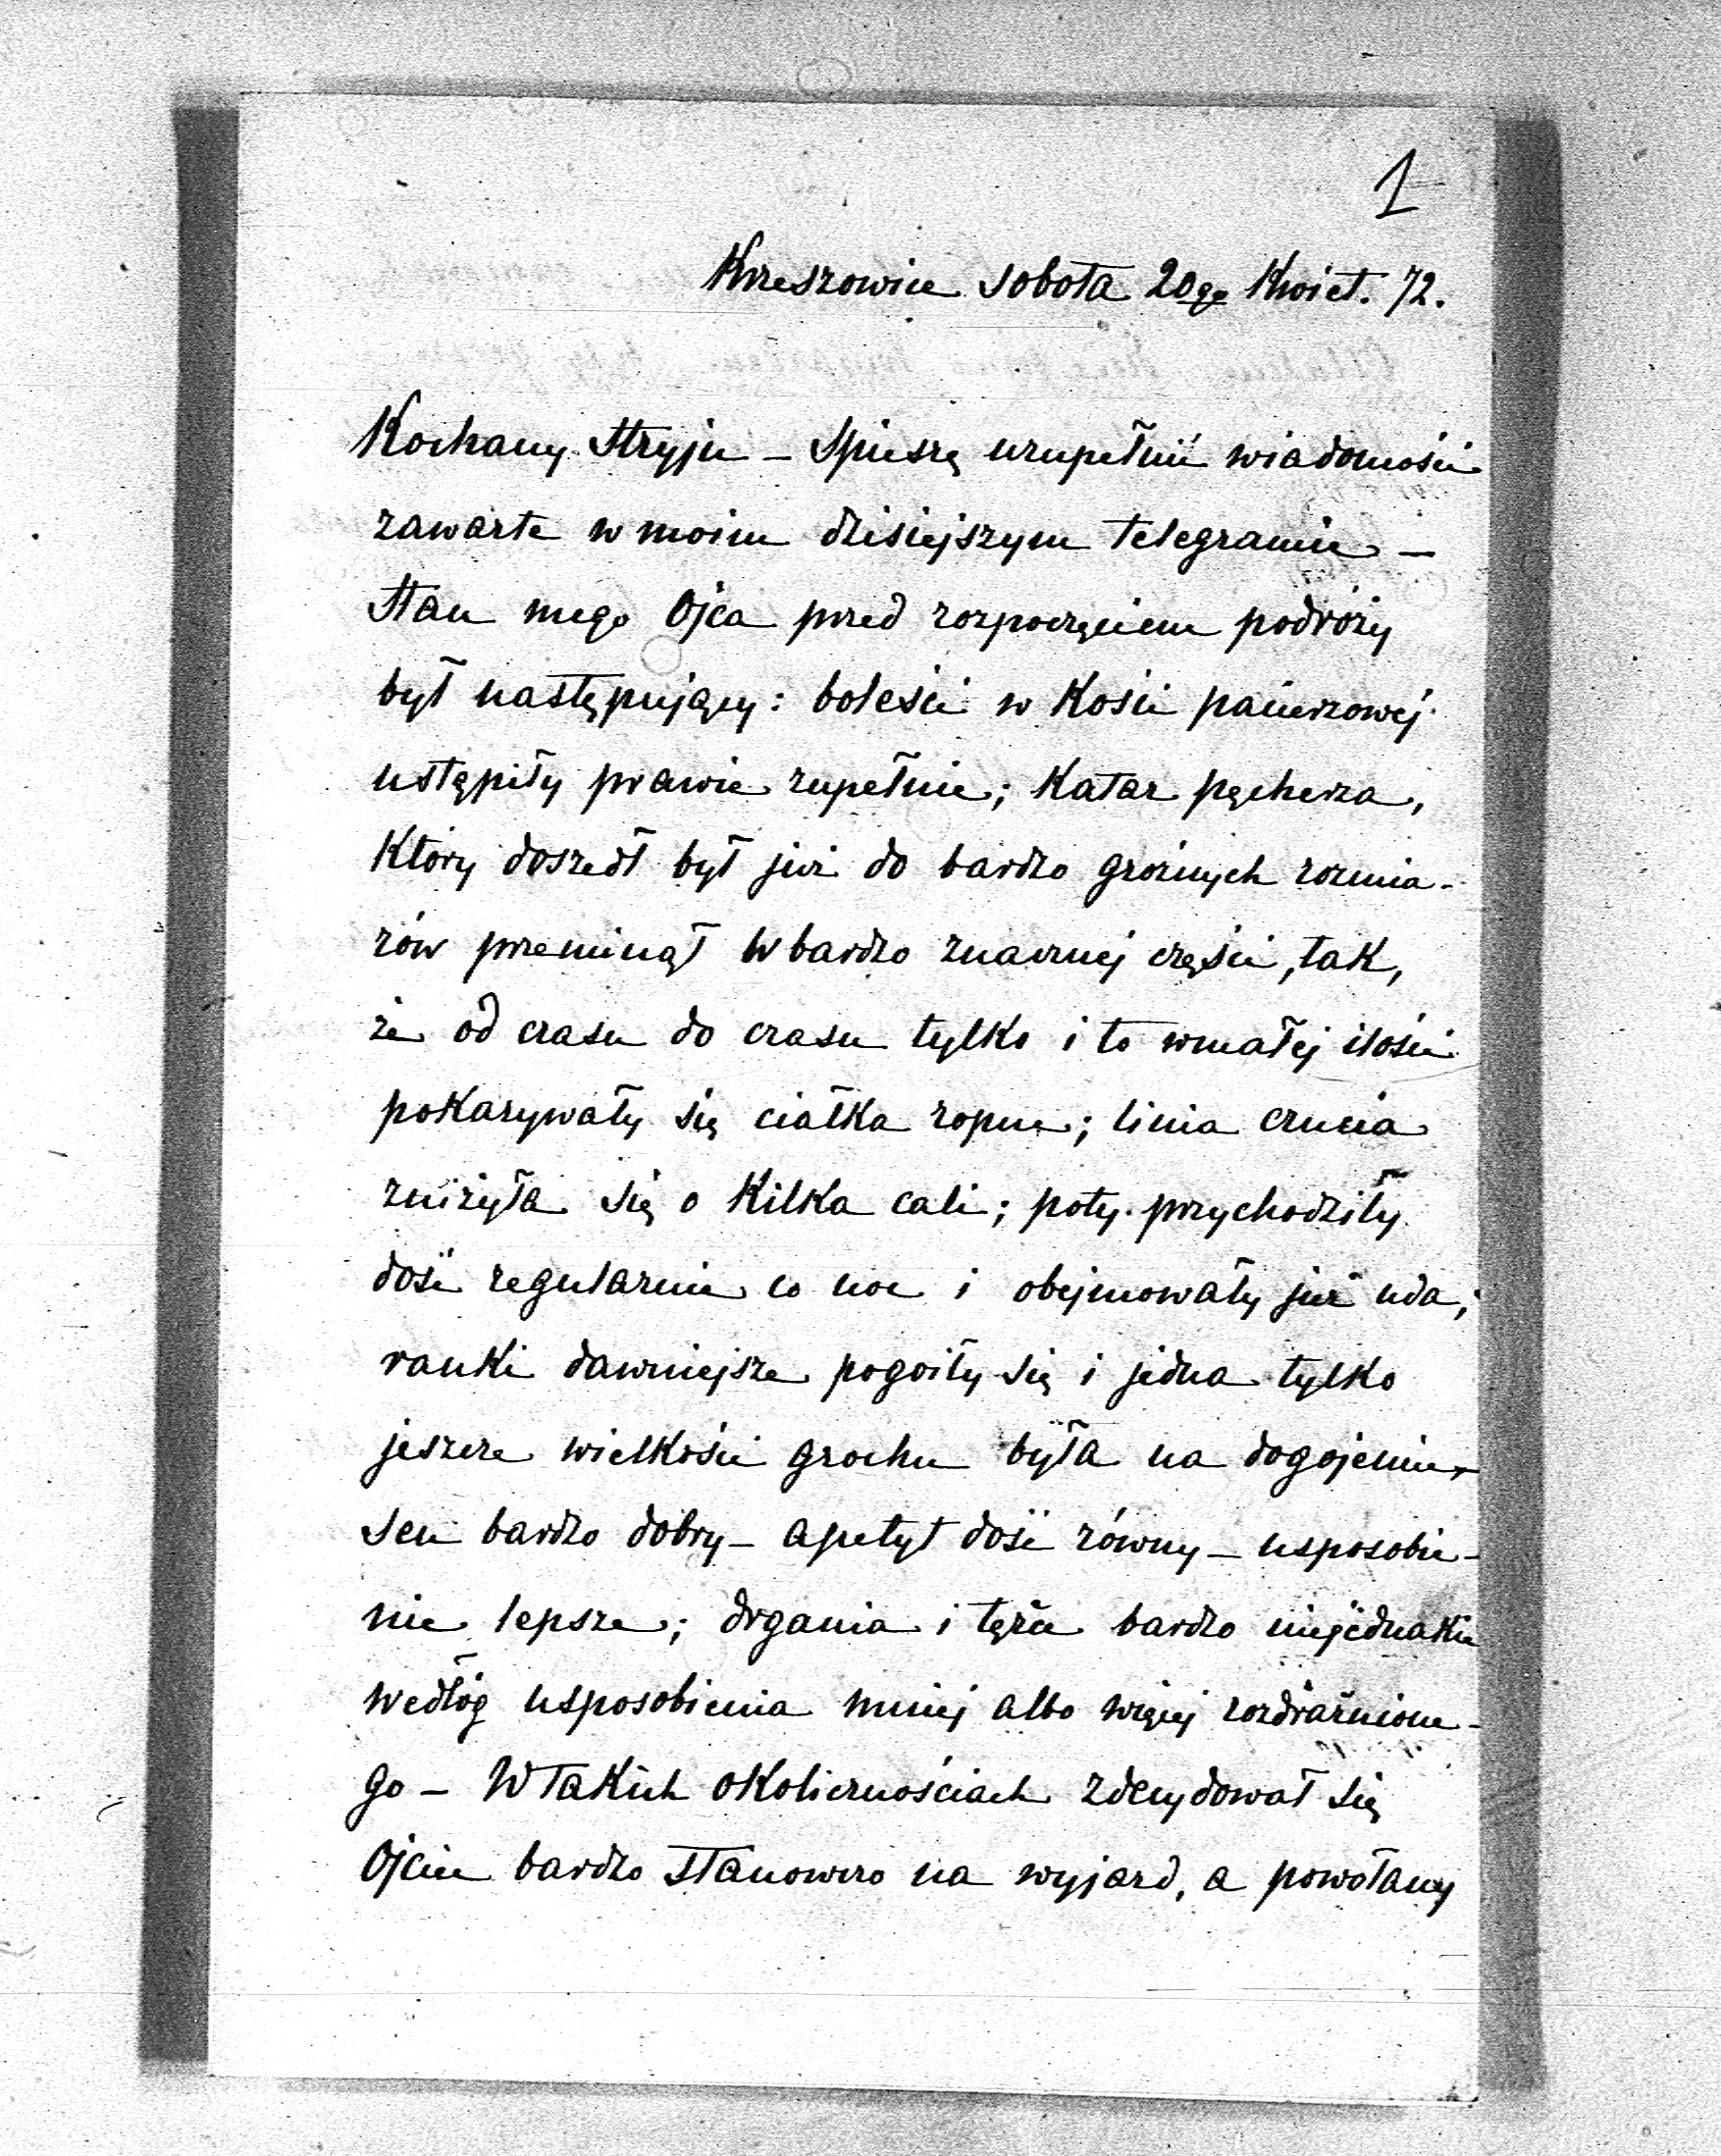 1
Krzeszowice sobota 20go Kwiet. 72.
Kochany Stryju – Spieszę uzupełnić wiadomości
zawarte w moim dzisiejszym telegramie –
Stan mego Ojca przed rozpoczęciem podróży
był następujący: boleści w kości pacierzowej
ustąpiły prawie zupełnie; Katar pęcherza,
który doszedł był już do bardzo groźnych rozmia-
rów przeminął w bardzo znacznej części, tak,
że od czasu do czasu tylko i to w małej ilości
pokazywały się ciałka ropne; linia czucia
zniżyła się o kilka cali; poty przychodziły
dość regularnie co noc i obejmowały już uda;
ranki dawniejsze pogoiły się i jedna tylko
jeszcze wielkości grochu była na dogojeniu –
Sen bardzo dobry – apetyt dość równy – usposobie-
nie lepsze; drgania i tężce bardzo niejednakie
wedłóg usposobienia mniej albo więcej rozdrażnione-
go – W takich okolicznościach zdecydował się
Ojciec bardzo stanowczo na wyjazd, a powołany